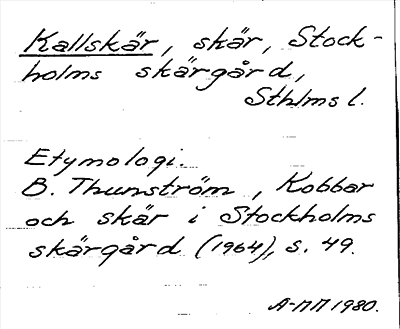 Kallskär, skär, Stock-
holms skärgård,
Sthlms l.
Etymologi.
B. Thunström, Kobbar
och skär i Stockholms
skärgård (1964), s. 49.
A-MM 1980.